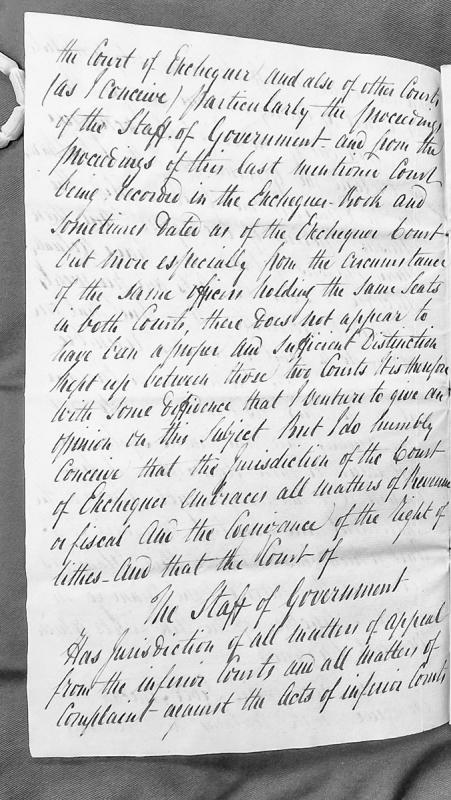 the Court of Exchequer and also of other Courts
(as I Conceive) particularly the proceedings
of the Staff of Government and from the
proceedings of this last mention Court
being Record in the Exchequer Book and
sometimes Dated as of the Exchequer Court
but more especially from the circumstance
of the same officers holding the same Seats
in both Courts, there does not appear to
have been a proper and sufficient Distinction
kept up between those two Courts it is therefore
with some diffidence that I venture to give an
opinion on this Subject But I do humbly
Conceive that the Jurisdiction of the Court
of Exchequer embraces all matters of Revenue
or fiscal and the Cognizance of the Right of
tithes - And that the Court of
The Staff of Government
Has Jurisdiction of all matters of appeal
from the inferior Courts and all matters of
Complaint against the Acts of inferior Courts